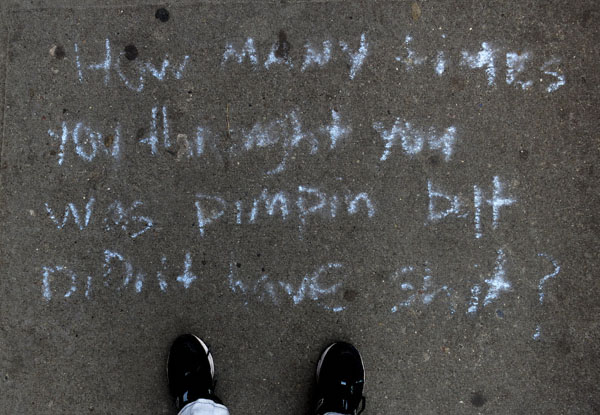 How many times
you thought you
was pimpin but
Didn't have shit?